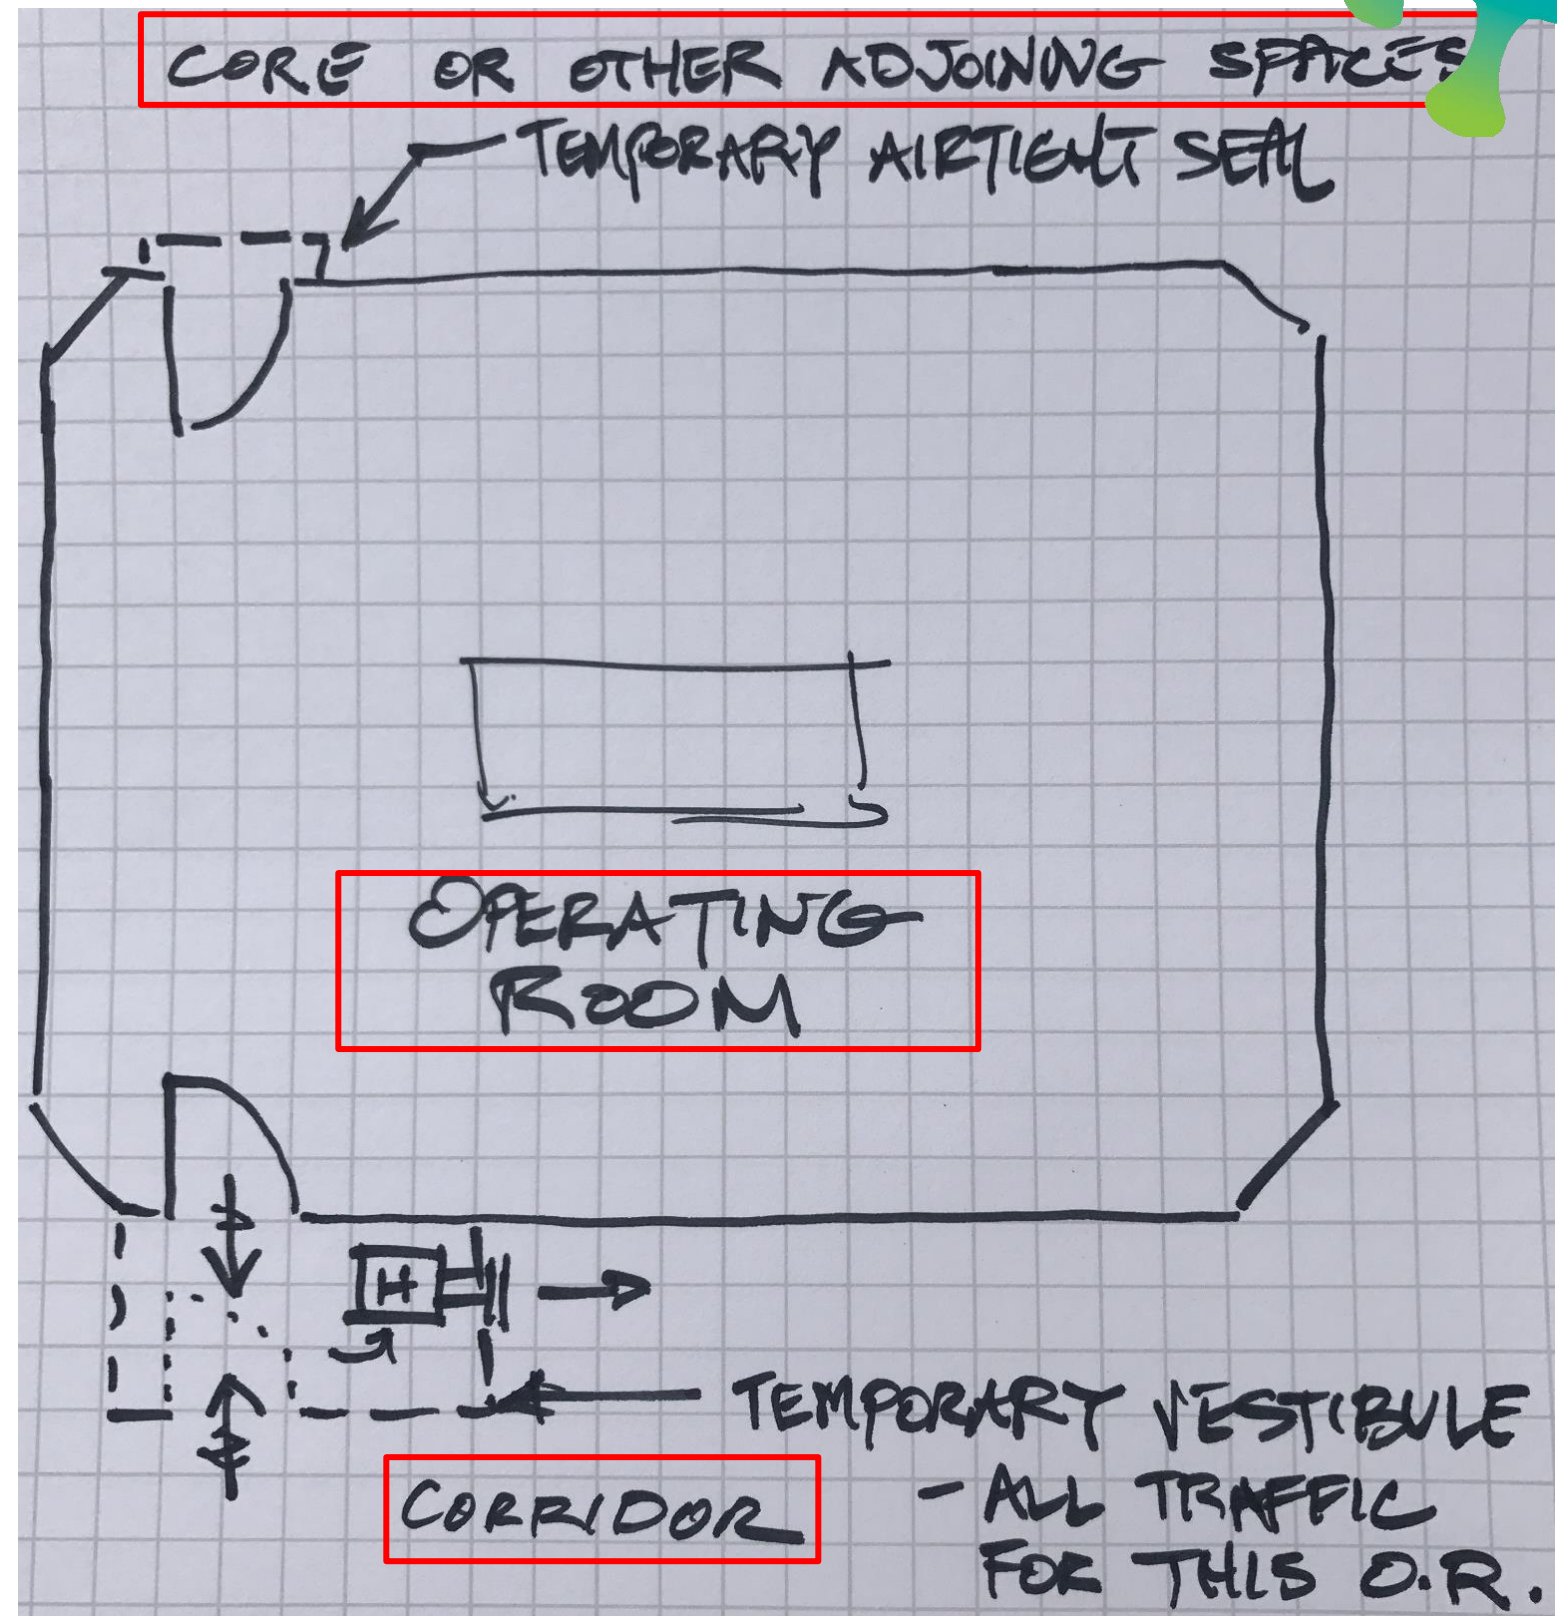 CORE OR OTHER ADJOINING SPACES
TEMPORARY AIRTIGHT SEAL
OPERATING
ROOM
H
TEMPORARY VESTIBULE
- ALL TRAFFIC
FOR THIS O.R.
CORRIDOR